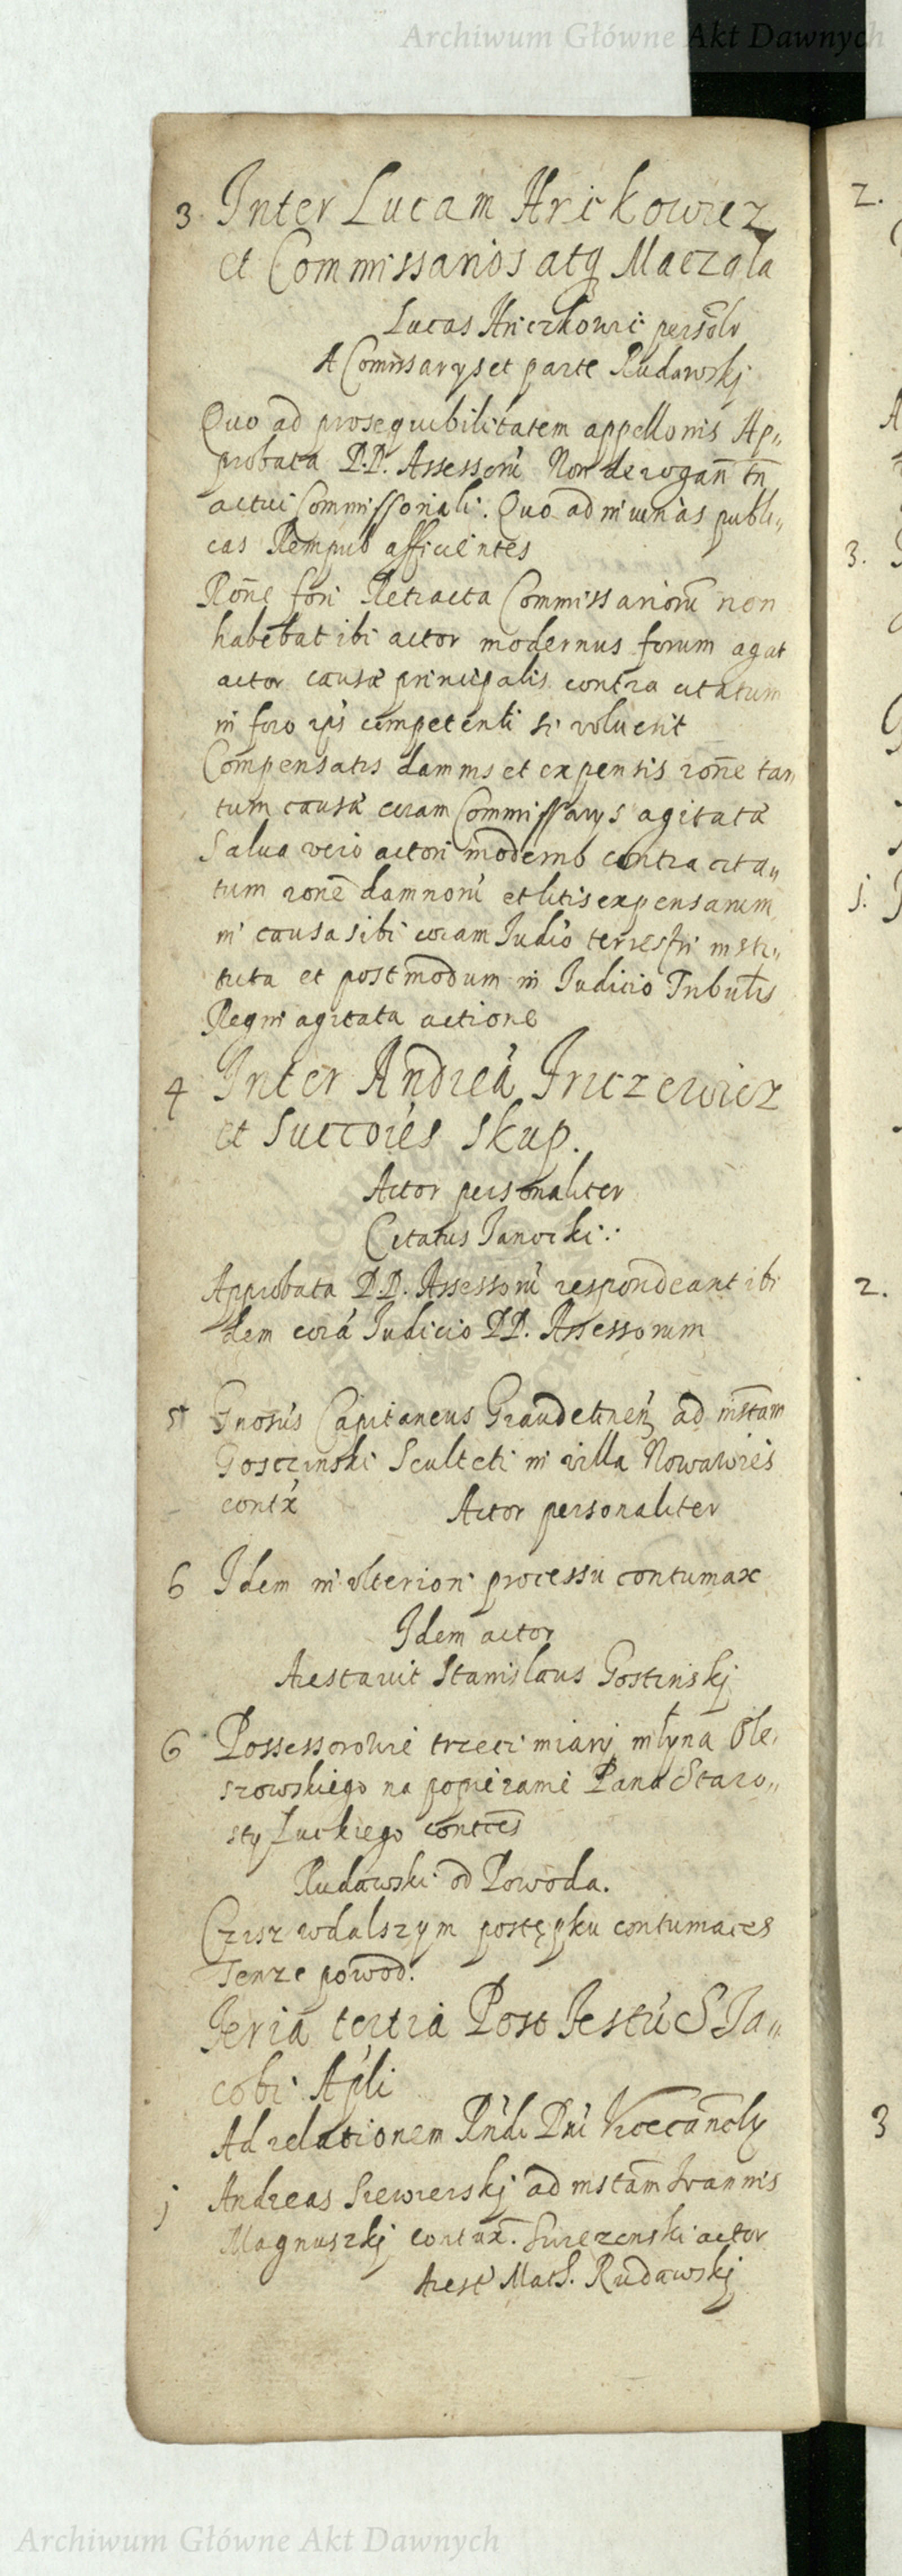 Archiwum Główne Akt Dawnych
3 Inter Lucam Hrickowicz
et Commissarios atq Maczala
Lucas Hriczkowic persolr
A Commissarys et parte Rudawskj
Quo ad prosequibilitatem appellonis Ap„
probata D.D. Assessorū Non derogan̄ tn̄
actui Commissoriali. Quo ad iniurias publi„
cas Rempub afficientes
Ron̄e fori Retracta Commissariorū non
habebat ibi actor modernus forum agat
actor causæ principalis contra citatum
in foro ips competenti si voluerit
Compensatis damnis et expensis ron̄e tan
tum causæ coram Commissarys agitatæ
Salua vero actori moderno contra cita„
tum ronē damnorū et litis expensarum
in causa sibi coram Judio terrestri insti„
tuta et postmodum in Judicio Tribultis
Regni agitata actione
4 Inter Andreā Jriczewicz
et Succores Skup.
Actor personaliter
Citatus Janocki:
Approbata D.D. Assessorū respondeant ibi
dem corā Judicio DD. Assessorum
5 Gnosus Capitaneus Graudetinen ad instam
Gosczinski Sculteti in villa Nowawies
contx Actor personaliter
6 Idem in vlteriori processu contumax
Idem actor
Arestauit Stanislaus Gostinskj
6 Possessorowie trzeci miary młyna Ole,
szowskiego na popieranie Pana Staro„
sty Łuckiego contces
Rudawski od Powoda.
Czisz wdalszym postępku contumaces
Tenze powod.
Feria tertia Post Festū S Ja„
cobi Apli
Ad relationem Rndi Dni Vicecancly
j Andreas Siewierskj ad instam Ioannis
Magnuszkj contux. actor
Arest Math. Rudawskj
2.
3.
j.
2.
3
Archiwum Główne Akt Dawnych